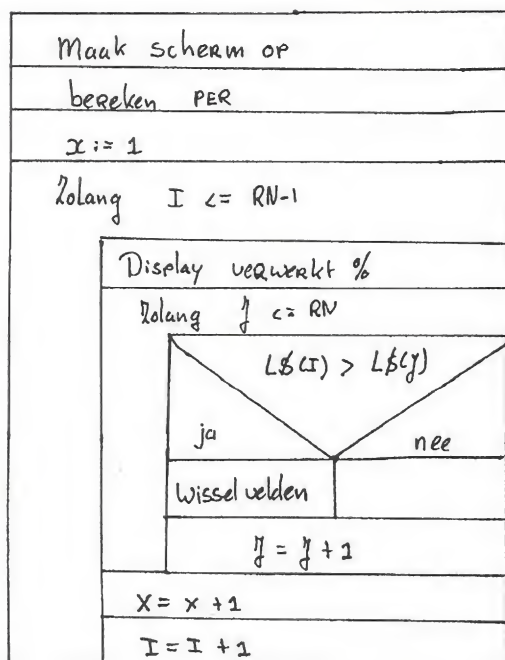 Maak scherm op
bereken PER
x := 1
Zolang I <= RN-1
Display verwerkt %
Zolang J <= RN
L$(I) > L$(J)
ja
nee
Wissel velden
J = J + 1
X = x + 1
I = I + 1